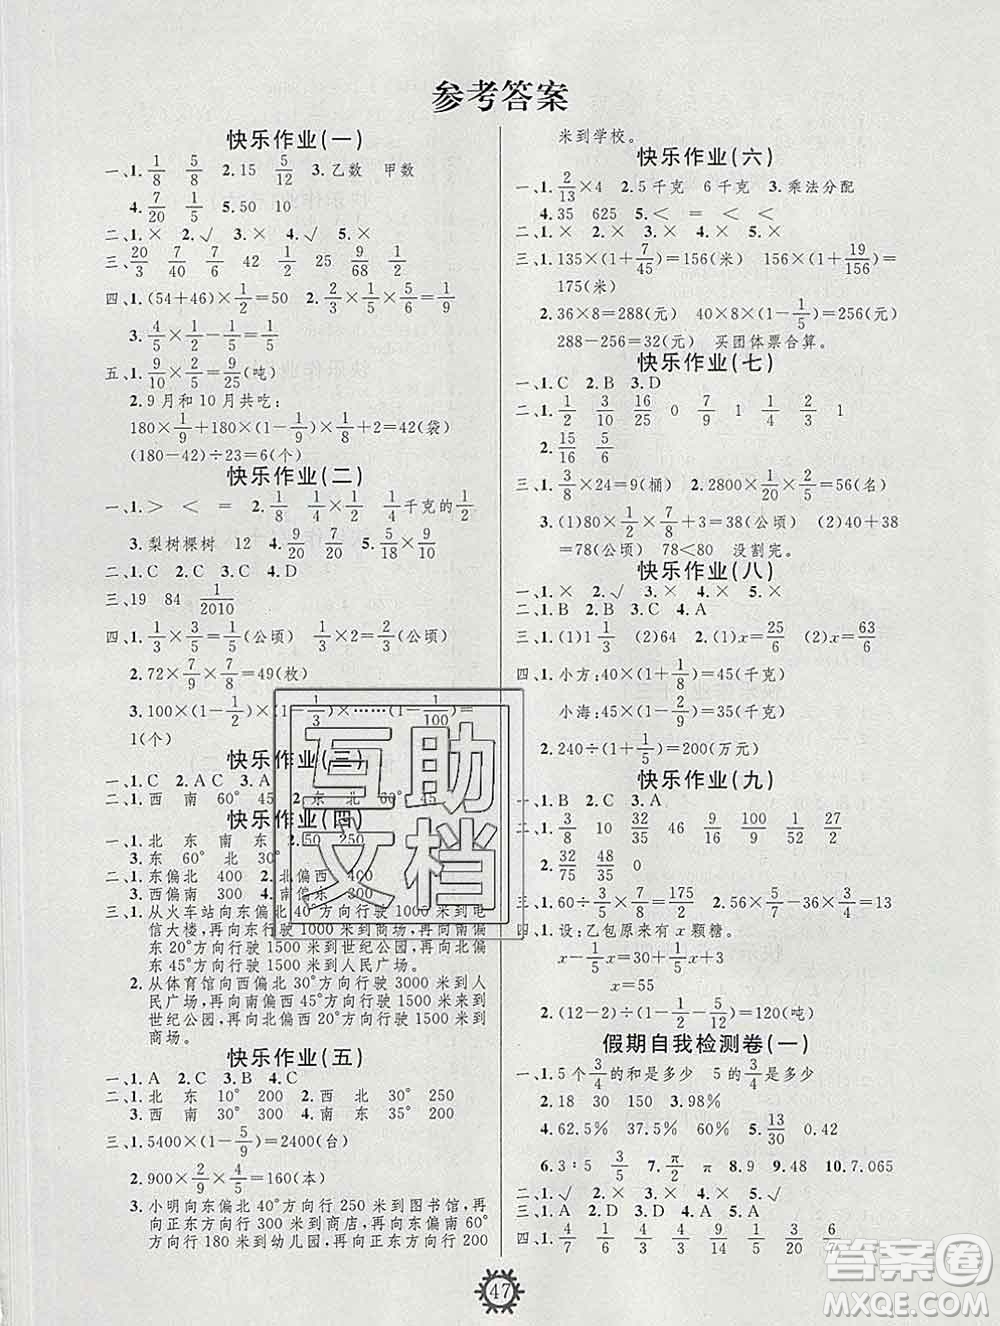 参考答案
快乐作业(一)
一、1. 1/8 5/8 2.15 5/12 3.乙数 甲数
4. 7/20 1/5 5.50 10
二、1.× 2.√ 3.× 4.√ 5.×
三、20/3 7/40 7/6 42 1/2 25 9/68 1/2
四、1.(54+46)×1/2=50 2. 2/3×1/5×5/6=1/9
3. 4/5×1/2-1/5=1/5
五、1. 9/10×2/5=9/25(吨)
2.9月和10月共吃:
180×1/9+180×(1-1/9)×1/8+2=42(袋)
(180-42)÷23=6(个)
快乐作业(二)
一、1.> < = 2. 1/8 1/4×1/2 1/4千克的1/2
3.梨树棵树 12 4. 1/9 5. 5/18×5/18
二、1.C 2.C 3.C 4.D
三、19 84 1/2010
四、1. 1/3×3/5=1/5(公顷) 1/3×2=2/3(公顷)
2.72×7/8×7/9=49(枚)
3.100×(1-1/2)×(1-1/3)×……(1-1/100)=
1(个)
快乐作业(三)
一、1.C 2.A C 3.A
二、1.西 南 60° 45 2.东 北 60° 45
快乐作业(四)
一、1.北 东 南 东 2.50 250
3.东 60° 北 30°
二、1.东偏北 400 2.北偏西 400
3.西偏南 300 4.南偏东 300
三、1.从火车站向东偏北40°方向行驶1000米到电
信大楼,再向东行驶1000米到商场,再向南偏
东20°方向行驶1500米到世纪公园,再向北偏
东45°方向行驶1500米到人民广场。
2.从体育馆向西偏北30°方向行驶3000米到人
民广场,再向南偏西45°方向行驶1500米到
世纪公园,再向北偏西20°方向行驶1500米到
商场。
快乐作业(五)
一、1.A 2.C 3.B 4.C 5.A
二、1.北 东 10° 200 2.西 北 30° 250
3.西 南 30° 300 4.南 东 35° 200
三、1.5400×(1-5/9)=2400(台)
2.900×2/9×4/5=160(本)
3.小明向东偏北40°方向行250米到图书馆,再
向正东方向行300米到商店,再向南偏东60°
方向行180米到幼儿园,再向正东方向行200
米到学校。
快乐作业(六)
一、1. 2/13×4 2.5千克 6千克 3.乘法分配
4.35 625 5.< = < <
二、1.× 2.× 3.× 4.√ 5.×
三、1.135×(1+7/45)=156(米) 156×(1+19/156)=
175(米)
2.36×8=288(元) 40×8×(1-1/5)=256(元)
288-256=32(元) 买团体票合算。
快乐作业(七)
一、1.C 2.B 3.D
二、1. 1/2 3/10 16/25 0 7/9 1 1/4 2/3 1
2. 15/16 5/6
三、1. 3/8×24=9(桶) 2.2800×1/20×2/5=56(名)
3.(1)80×1/2×7/8+3=38(公顷) (2)40+38
=78(公顷) 78<80 没割完。
快乐作业(八)
一、1.× 2.√ 3.× 4.× 5.×
二、1.B 2.B 3.C 4.A
三、1.(1)1 1/3 (2)64 2.(1)x=25/6 (2)x=63/6
四、1.小方:40×(1+1/8)=45(千克)
小海:45×(1-2/9)=35(千克)
2.240÷(1+1/5)=200(万元)
快乐作业(九)
一、1.B 2.C 3.A
二、1. 3/8 10 32/35 46 14/9 100/9 1/50 1
2. 32/75 48/55
三、1.60÷3/5÷4/7=175/2 2.56×5/7-36×3/4=13
四、1.设:乙包原来有x颗糖。
x-1/5x=1/5x+10/3x+3
x=55
2.(12-2)÷(1-5/12-1/2)=120(吨)
假期自我检测卷(一)
一、1.5个3/4的和是多少 5的3/4是多少
2.18 30 150 3.98%
4.62.5% 37.5% 60% 5. 13/30 0.42
6.3:5 3/5 7. π/2 π 8.29 9.48 10.7.065
二、1.√ 2.× 3.× 4.× 5.√
三、1.A 2.D 3.C 4.A 5.A
四、1. 4/7 1/6 3/4 1/6 1/4 7/3 3/20 1/14
47
互助文档
答案圈
MXQE.COM